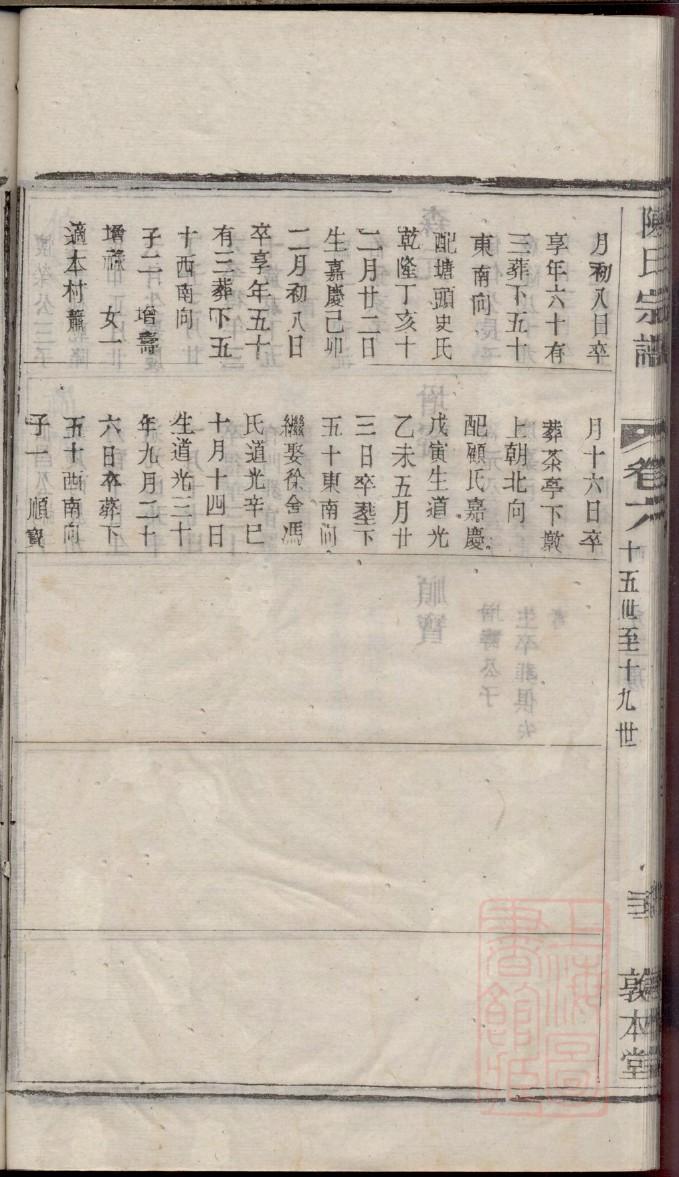 陳氏宗譜
卷六
十五世至十九世
敦本堂
月初八日卒
享年六十有
三葬下五十
東南向
配塘頭史氏
乾隆丁亥十
二月廿二日
生嘉慶己卯
二月初八日
卒享年五十
有三葬下五
十西南向
子二 增壽
增祿 女一
適本村蕭
月十六日卒
葬茶亭下敦
上朝北向
配顧氏嘉慶
戊寅生道光
乙未五月廿
三日卒塟下
五十東南向
繼娶徐舍馮
氏道光辛巳
十月十四日
生道光三十
年九月二十
六日卒葬下
五十西南向
子一 順寶
上海圖書館藏